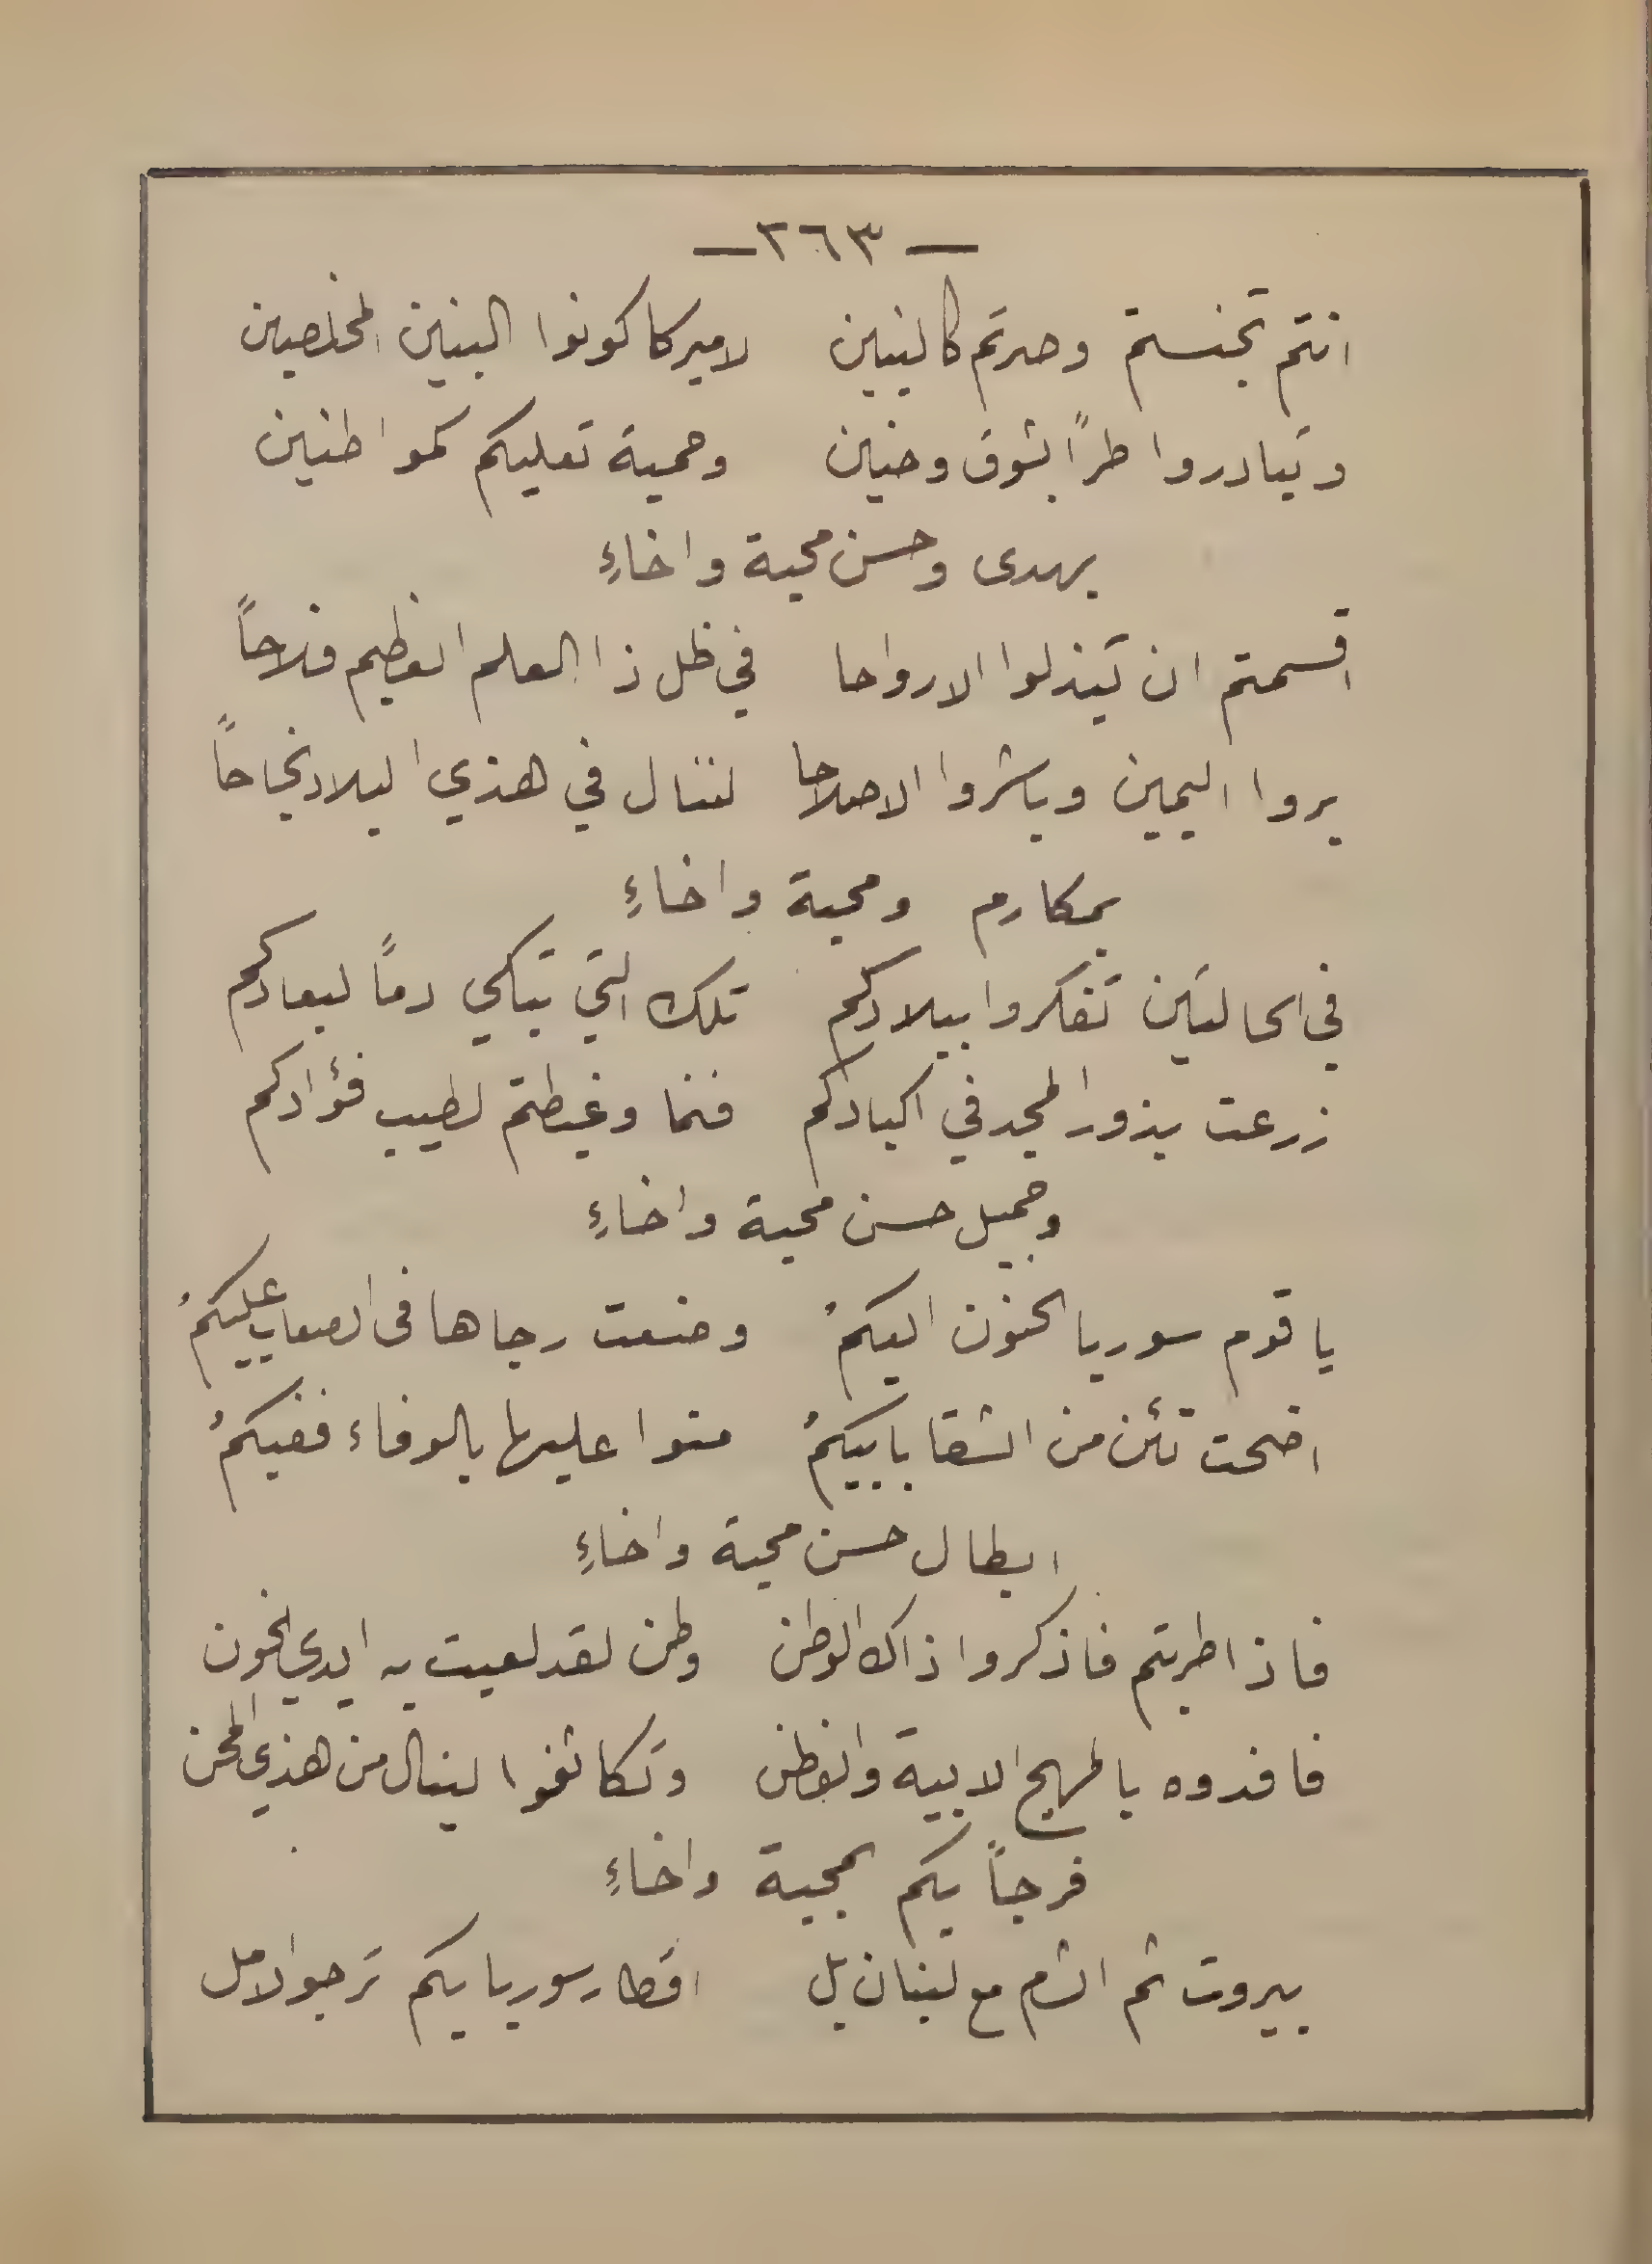 — ٢٦٣ —
انتم تجنستم وصرتم كالبنين لاميركا كونوا البنين المخلصين
وتبادروا طراً بشوق وحنين وحمية تعليكم كمواطنين
بهدى وحسن محبة واخاءِ
اقسمتم ان تبذلوا الارواحا في ظل ذا العلم العظيم فلاحاً
بروا اليمين وباشروا الاصلاحا لننال في هذي البلاد نجاحاً
بمكارم ومحبة واخاءِ
في الحالتين تفكروا ببلادكم تلك التي تبكي دماً لبعادكم
زرعت بذور المجد في اكبادكم فنما وغبطتم لطيب فؤادكم
وجميل حسن محبة واخاءِ
يا قوم سوريا الحنون اليكمُ وضعت رجاها في الصعاب عليكمُ
اضحت تئن من الشقا بابيكمُ منوا عليها بالوفاء ففيكمُ
ابطال حسن محبة واخاءِ
فاذا طربتم فاذكروا ذاك الوطن وطن لقد لعبت به ايدي الخون
فافدوه بالمهج الابية والفطن وتكاتفوا لينال من هذي المحن
فرجاً بكم بمحبة واخاءِ
بيروت ثم الشام مع لبنان بل اقطار سوريا بكم ترجو الامل